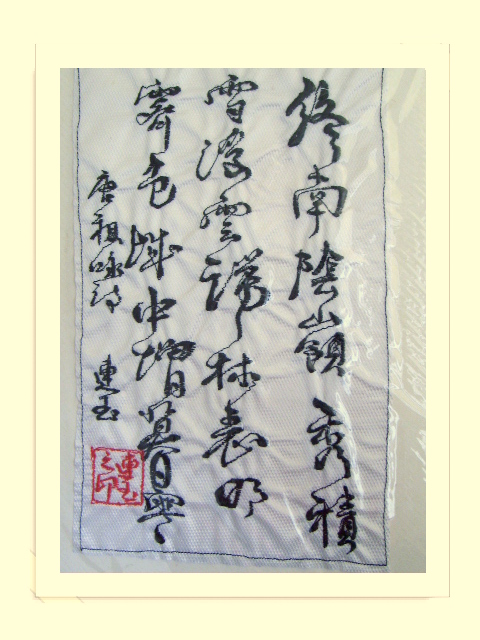 終南陰嶺秀積
雪浮雲端林表明
霽色城中增暮寒
唐祖咏詩 連玉
連玉之印